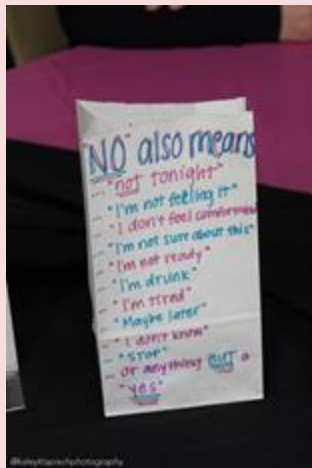 "NO" also means
... "not tonight"
- "I'm not feeling it"
- "I don't feel comfortable"
- "I'm not sure about this"
- "I'm not ready"
- "I'm drunk"
- "I'm tired"
- "Maybe later"
- "I don't know"
- "STOP"
- or anything BUT a
"yes"